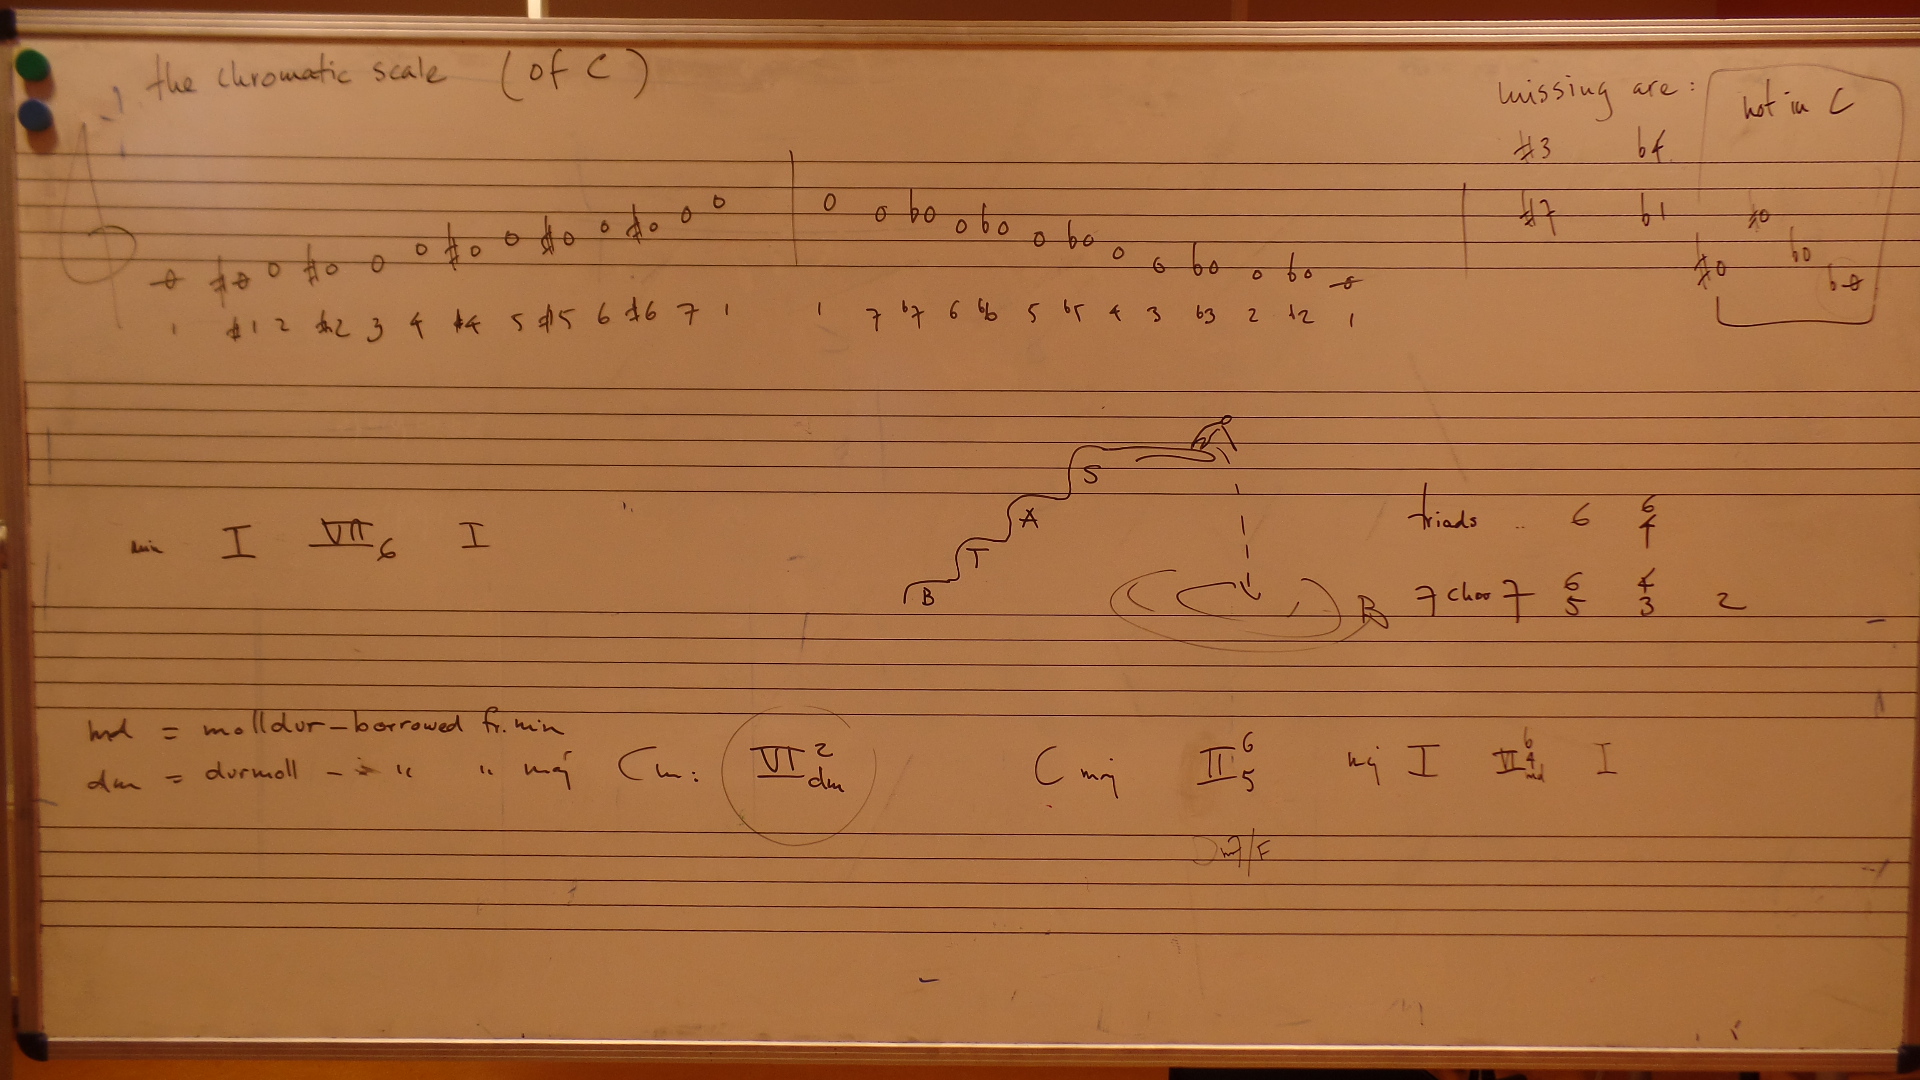 the chromatic scale (of C)
missing are:
not in C
#3 b4
#7 b1
1 #1 2 #2 3 4 #4 5 #5 6 #6 7 1
1 7 b7 6 b6 5 b5 4 3 b3 2 b2 1
S
A
T
B
min I VII6 I
triads 6 6/4
7 chor 7 6/5 4/3 2
B
md = molldur - borrowed fr. min
dm = durmoll - " " maj
Cm: VI2 dm
C maj II6/5
maj I VI6/4 md I
Dm7/F